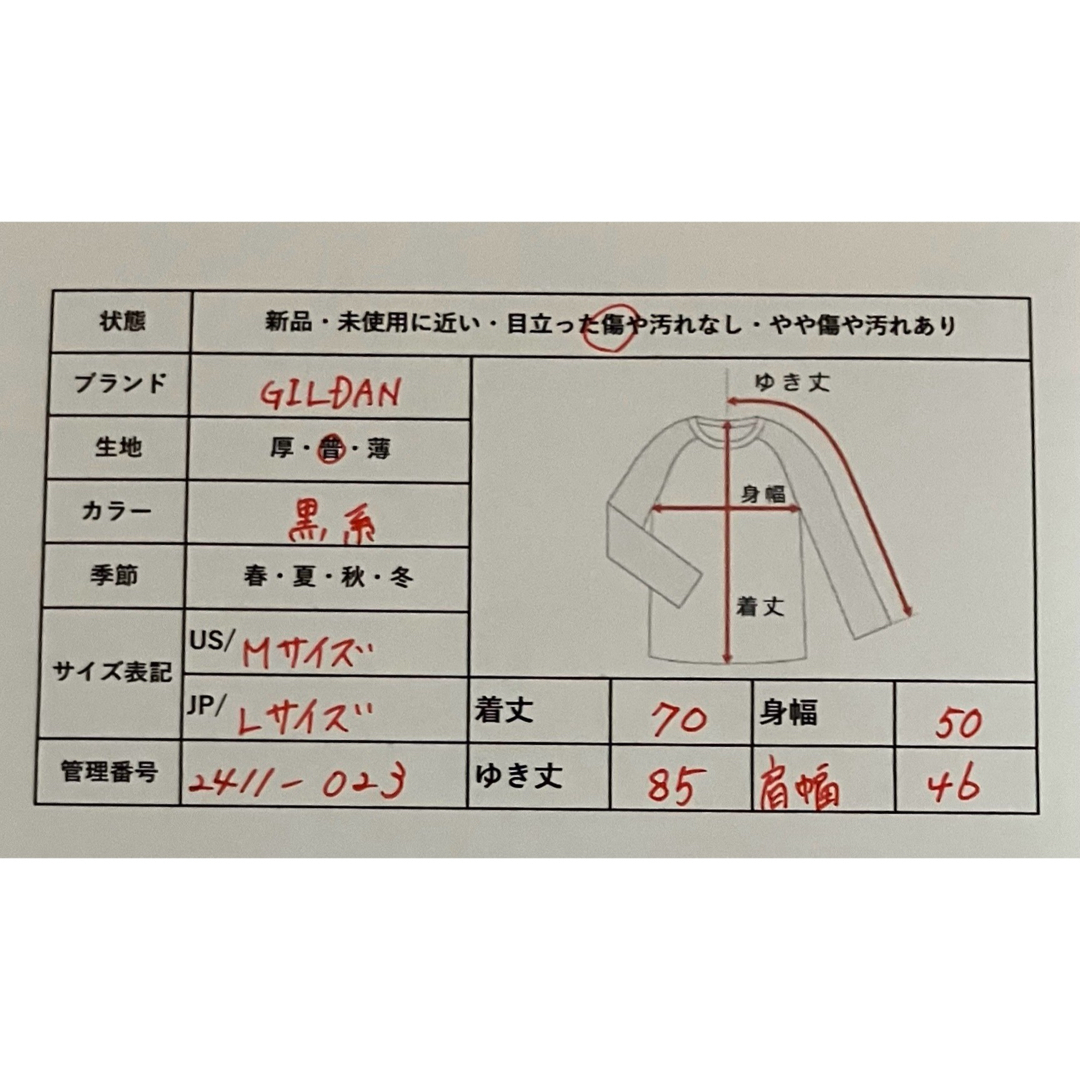 状態 新品・未使用に近い・目立った傷や汚れなし・やや傷や汚れあり
ブランド GILDAN
生地 厚・普・薄
カラー 黒系
季節 春・夏・秋・冬
サイズ表記 US/ Mサイズ
JP/ Lサイズ
管理番号 2411-023
ゆき丈
身幅
着丈
着丈 70 身幅 50
ゆき丈 85 肩幅 46